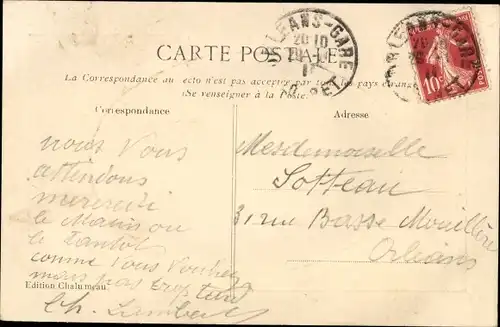 CARTE POSTALE
ORLEANS-GARE
La Correspondance au recto n'est pas acceptée par tous les pays étrangers
(Se renseigner à la Poste.)
Correspondance
Adresse
nous vous
attendons
mercredi
le Matin ou
le Tantot
comme vous voudrez
mais pas trop tard
Ch. Lambert
Edition Chalumeau.
Mesdemoiselle
Sotteau
31 rue Basse Mouillère
Orléans
10c